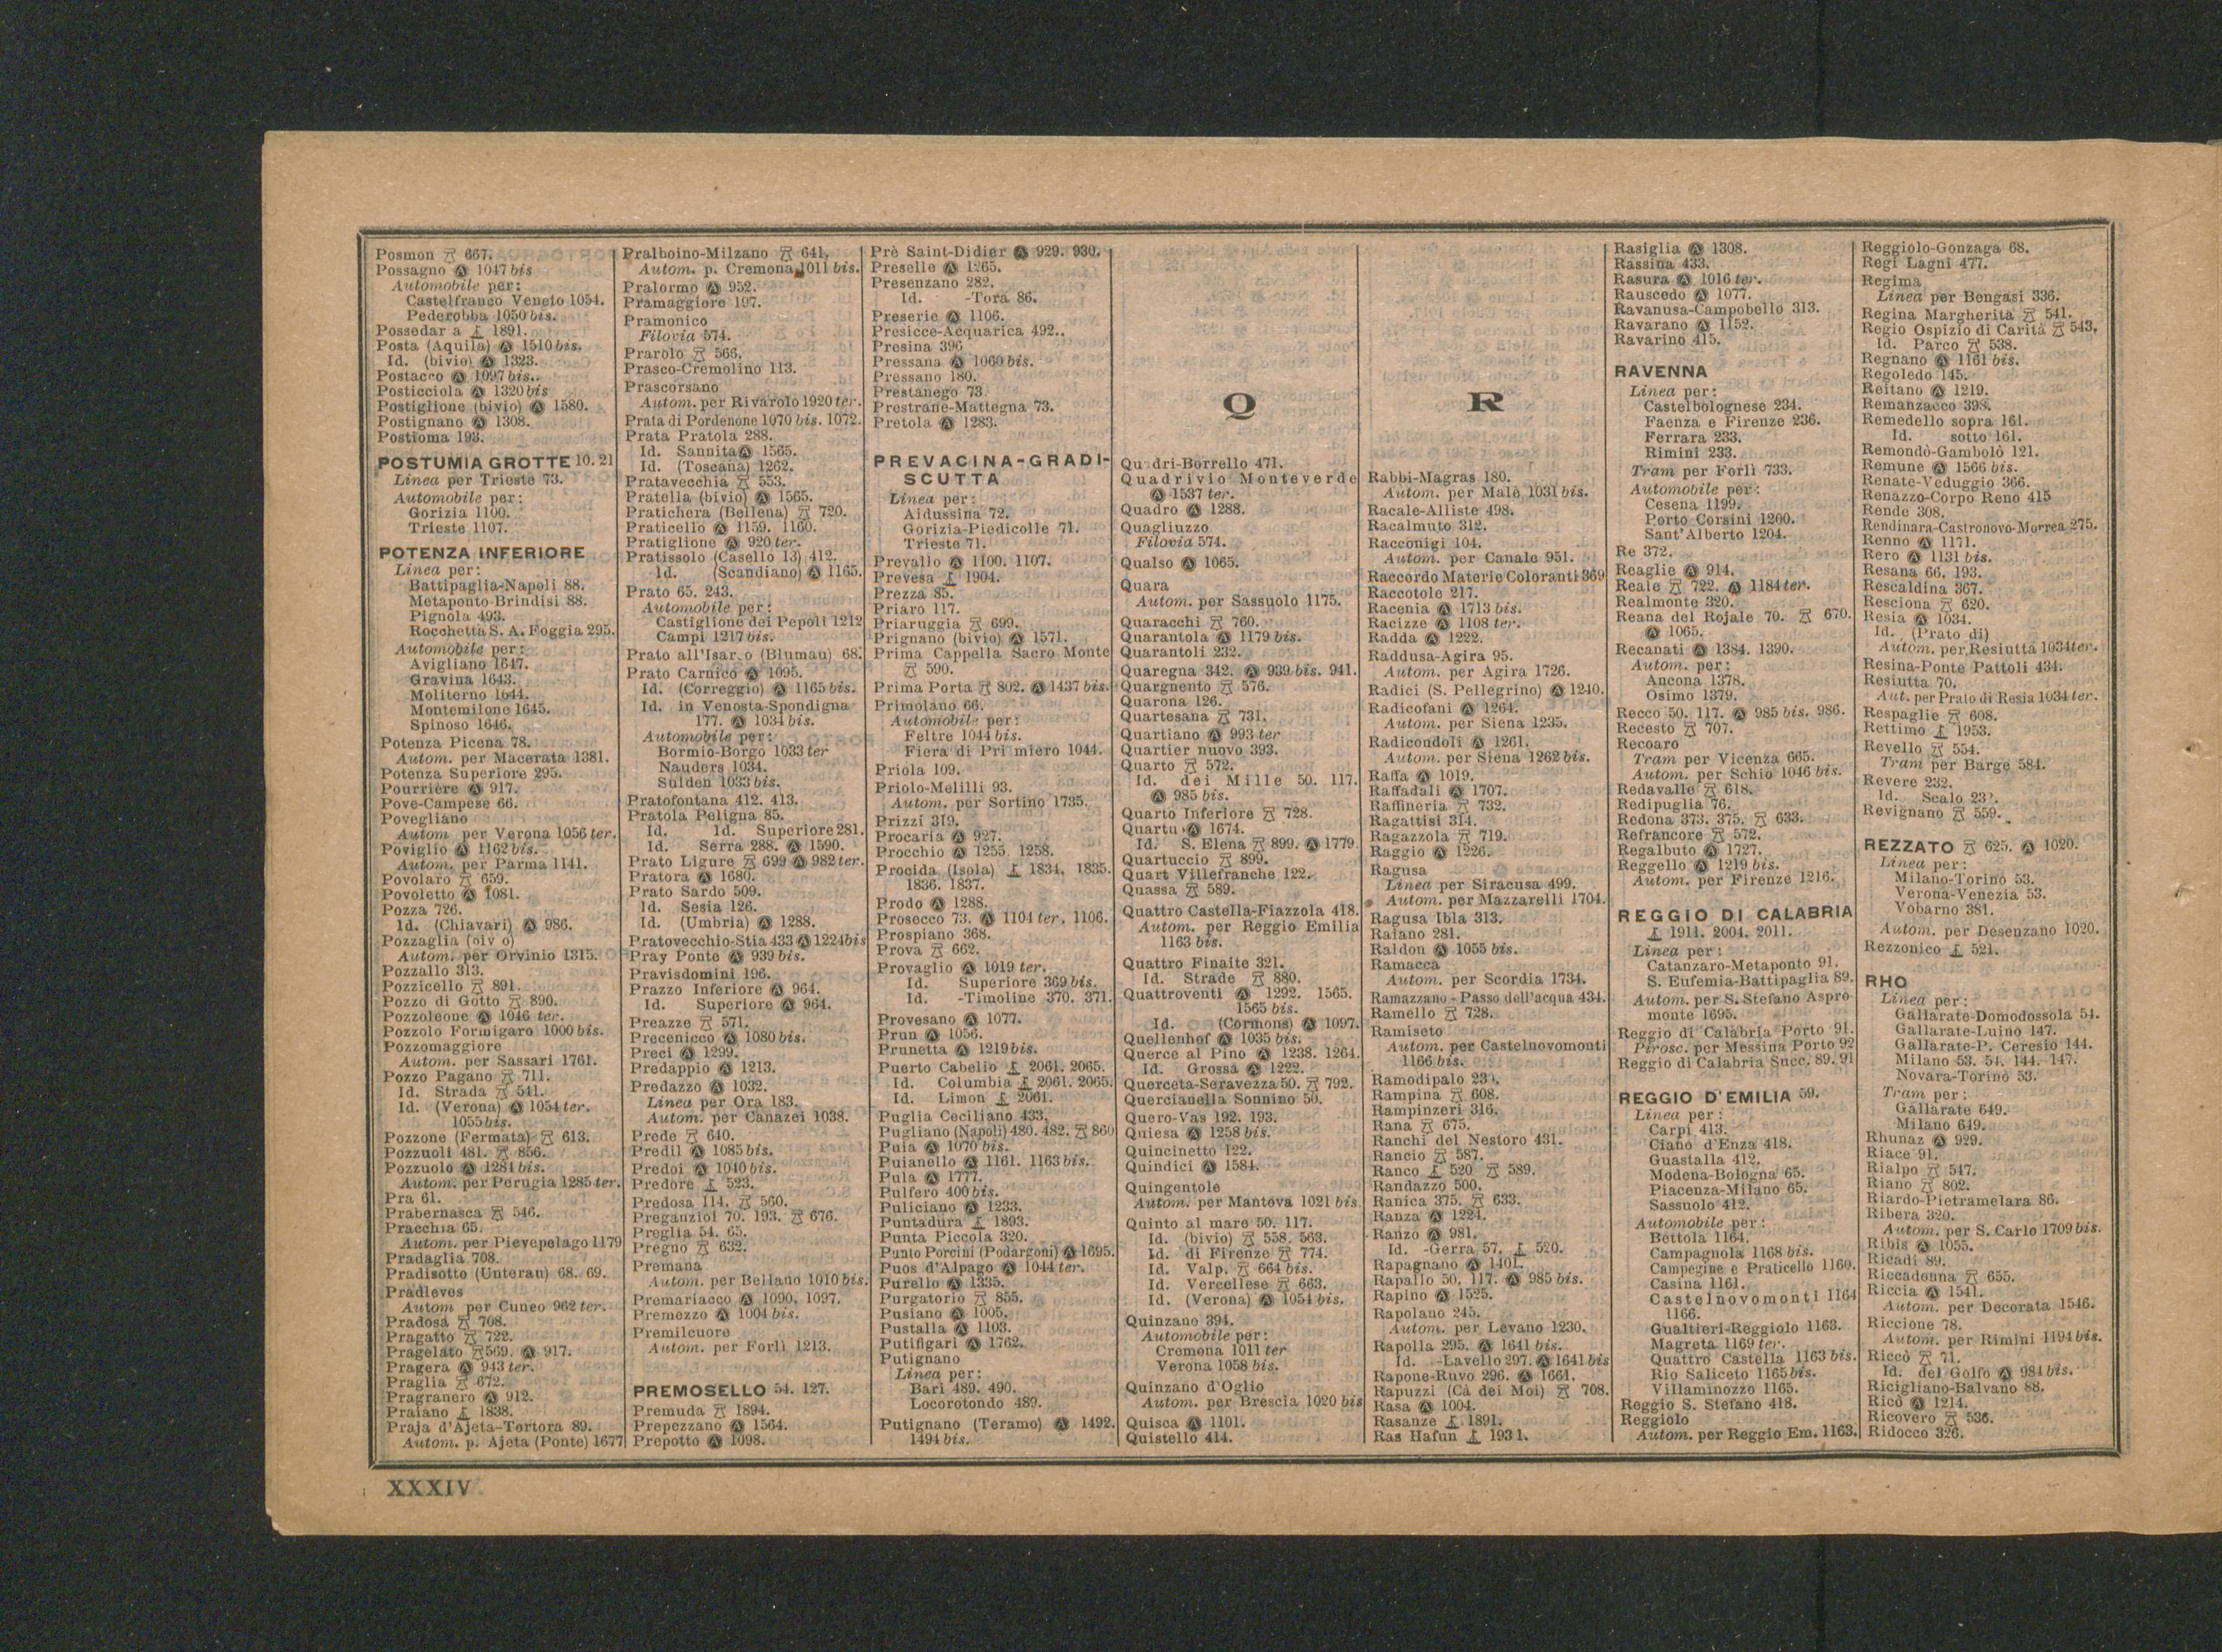 Posmon 667.
Possagno Ⓐ 1047 bis
Automobile per:
Castelfranco Veneto 1054.
Pederobba 1050 bis.
Possedar a 1891.
Posta (Aquila) Ⓐ 1510 bis.
Id. (bivio) Ⓐ 1323.
Postacco Ⓐ 1097 bis..
Posticciola Ⓐ 1320 bis
Postiglione (bivio) Ⓐ 1580.
Postignano Ⓐ 1308.
Postioma 193.
POSTUMIA GROTTE 10. 21
Linea per Trieste 73.
Automobile per:
Gorizia 1100.
Trieste 1107.
POTENZA INFERIORE
Linea per:
Battipaglia-Napoli 88.
Metaponto-Brindisi 88.
Pignola 493.
Rocchetta S. A. Foggia 295.
Automobile per:
Avigliano 1647.
Gravina 1643.
Moliterno 1644.
Montemilone 1645.
Spinoso 1646.
Potenza Picena 78.
Autom. per Macerata 1381.
Potenza Superiore 295.
Pourrière Ⓐ 917.
Pove-Campese 66.
Povegliano
Autom per Verona 1056 ter.
Poviglio Ⓐ 1162 bis.
Autom. per Parma 1141.
Povolaro 659.
Povoletto Ⓐ 1081.
Pozza 726.
Id. (Chiavari) Ⓐ 986.
Pozzaglia (biv o)
Autom. per Orvinio 1315.
Pozzallo 313.
Pozzicello 891.
Pozzo di Gotto 890.
Pozzoleone Ⓐ 1046 ter.
Pozzolo Formigaro 1000 bis.
Pozzomaggiore
Autom. per Sassari 1761.
Pozzo Pagano 711.
Id. Strada 541.
Id. (Verona) Ⓐ 1054 ter.
1055 bis.
Pozzone (Fermata) 613.
Pozzuoli 481. 856.
Pozzuolo Ⓐ 1284 bis.
Autom. per Perugia 1285 ter.
Pra 61.
Prabernasca 546.
Pracchia 65.
Autom. per Pievepelago 1179
Pradaglia 708.
Pradisotto (Unterau) 68. 69.
Pradleves
Autom per Cuneo 962 ter.
Pradosa 708.
Pragatto 722.
Pragelato 569. Ⓐ 917.
Pragera Ⓐ 943 ter.
Praglia 672.
Pragranero Ⓐ 912.
Praiano 1838.
Praja d'Ajeta-Tortora 89.
Autom. p. Ajeta (Ponte) 1677
Pralboino-Milzano 641.
Autom. p. Cremona 1011 bis.
Pralormo Ⓐ 952.
Pramaggiore 197.
Pramonico
Filovia 574.
Prarolo 566.
Prasco-Cremolino 113.
Prascorsano
Autom. per Rivarolo 1920 ter.
Prata di Pordenone 1070 bis. 1072.
Prata Pratola 288.
Id. Sannita Ⓐ 1565.
Id. (Toscana) 1262.
Pratavecchia 553.
Pratella (bivio) Ⓐ 1565.
Pratichera (Bellena) 720.
Praticello Ⓐ 1159. 1160.
Pratiglione Ⓐ 920 ter.
Pratissolo (Casello 13) 412.
Id. (Scandiano) Ⓐ 1165.
Prato 65. 243.
Automobile per:
Castiglione dei Pepoli 1212
Campi 1217 bis.
Prato all'Isarco (Blumau) 68.
Prato Carnico Ⓐ 1095.
Id. (Correggio) Ⓐ 1165 bis.
Id. in Venosta-Spondigna
177. Ⓐ 1034 bis.
Automobile per:
Bormio-Borgo 1033 ter
Nauders 1034.
Sulden 1033 bis.
Pratofontana 412. 413.
Pratola Peligna 85.
Id. Id. Superiore 281.
Id. Serra 288. Ⓐ 1590.
Prato Ligure 699 Ⓐ 982 ter.
Pratora Ⓐ 1680.
Prato Sardo 509.
Id. Sesia 126.
Id. (Umbria) Ⓐ 1288.
Pratovecchio-Stia 433 Ⓐ 1224 bis
Pray Ponte Ⓐ 939 bis.
Pravisdomini 196.
Prazzo Inferiore Ⓐ 964.
Id. Superiore Ⓐ 964.
Preazze 571.
Precenicco Ⓐ 1080 bis.
Preci Ⓐ 1299.
Predappio Ⓐ 1213.
Predazzo Ⓐ 1032.
Linea per Ora 183.
Autom. per Canazei 1038.
Prede 640.
Predil Ⓐ 1085 bis.
Predoi Ⓐ 1040 bis.
Predore 523.
Predosa 114. 560.
Preganziol 70. 193. 676.
Preglia 54. 65.
Pregno 632.
Premana
Autom. per Bellano 1010 bis.
Premariacco Ⓐ 1090. 1097.
Premezzo Ⓐ 1004 bis.
Premilcuore
Autom. per Forlì 1213.
PREMOSELLO 54. 127.
Premuda 1894.
Prepezzano Ⓐ 1564.
Prepotto Ⓐ 1098.
Prè Saint-Didier Ⓐ 929. 930.
Preselle Ⓐ 1265.
Presenzano 282.
Id. -Tora 86.
Preserie Ⓐ 1106.
Presicce-Acquarica 492..
Presina 396
Pressana Ⓐ 1060 bis.
Pressano 180.
Prestanego 73.
Prestrane-Mattegna 73.
Pretola Ⓐ 1283.
PREVACINA-GRADI-
SCUTTA
Linea per:
Aidussina 72.
Gorizia-Piedicolle 71.
Trieste 71.
Prevallo Ⓐ 1100. 1107.
Prevesa 1904.
Prezza 85.
Priaro 117.
Priaruggia 699.
Prignano (bivio) Ⓐ 1571.
Prima Cappella Sacro Monte
590.
Prima Porta 802. Ⓐ 1437 bis.
Primolano 66.
Automobile per:
Feltre 1044 bis.
Fiera di Pri miero 1044.
Priola 109.
Priolo-Melilli 93.
Autom. per Sortino 1735.
Prizzi 319.
Procaria Ⓐ 927.
Procchio Ⓐ 1255. 1258.
Procida (Isola) 1834. 1835.
1836. 1837.
Prodo Ⓐ 1288.
Prosecco 73. Ⓐ 1104 ter. 1106.
Prospiano 368.
Prova 662.
Provaglio Ⓐ 1019 ter.
Id. Superiore 369 bis.
Id. -Timoline 370. 371.
Provesano Ⓐ 1077.
Prun Ⓐ 1056.
Prunetta Ⓐ 1219 bis.
Puerto Cabelio 2061. 2065.
Id. Columbia 2061. 2065.
Id. Limon 2061.
Puglia Ceciliano 433.
Pugliano (Napoli) 480. 482. 860
Puia Ⓐ 1070 bis.
Puianello Ⓐ 1161. 1163 bis.
Pula Ⓐ 1777.
Pulfero 400 bis.
Puliciano Ⓐ 1233.
Puntadura 1893.
Punta Piccola 320.
Punto Porcini (Podargoni) Ⓐ 1695.
Puos d'Alpago Ⓐ 1044 ter.
Purello Ⓐ 1335.
Purgatorio 855.
Pusiano Ⓐ 1005.
Pustalla Ⓐ 1103.
Putifigari Ⓐ 1762.
Putignano
Linea per:
Bari 489. 490.
Locorotondo 489.
Putignano (Teramo) Ⓐ 1492.
1494 bis.
Q
Qu dri-Borrello 471.
Quadrivio Monteverde
Ⓐ 1537 ter.
Quadro Ⓐ 1288.
Quagliuzzo
Filovia 574.
Qualso Ⓐ 1065.
Quara
Autom. per Sassuolo 1175.
Quaracchi 760.
Quarantola Ⓐ 1179 bis.
Quarantoli 232.
Quaregna 342. Ⓐ 939 bis. 941.
Quargnento 576.
Quarona 126.
Quartesana 731.
Quartiano Ⓐ 993 ter
Quartier nuovo 393.
Quarto 572.
Id. dei Mille 50. 117.
Ⓐ 985 bis.
Quarto Inferiore 728.
Quartu Ⓐ 1674.
Id. S. Elena 899. Ⓐ 1779
Quartuccio 899.
Quart Villefranche 122.
Quassa 589.
Quattro Castella-Fiazzola 418.
Autom. per Reggio Emilia
1163 bis.
Quattro Finaite 321.
Id. Strade 880.
Quattroventi Ⓐ 1292. 1565.
1565 bis.
Id. (Cormons) Ⓐ 1097.
Quellenhof Ⓐ 1035 bis.
Querce al Pino Ⓐ 1238. 1264.
Id. Grossa Ⓐ 1222.
Querceta-Seravezza 50. 792.
Quercianella Sonnino 50.
Quero-Vas 192. 193.
Quiesa Ⓐ 1258 bis.
Quincinetto 122.
Quindici Ⓐ 1584.
Quingentole
Autom. per Mantova 1021 bis
Quinto al mare 50. 117.
Id. (bivio) 558. 563.
Id. di Firenze 774.
Id. Valp. 664 bis.
Id. Vercellese 663.
Id. (Verona) Ⓐ 1054 bis.
Quinzano 394.
Automobile per:
Cremona 1011 ter
Verona 1058 bis.
Quinzano d'Oglio
Autom. per Brescia 1020 bis
Quisca Ⓐ 1101.
Quistello 414.
R
Rabbi-Magras 180.
Autom. per Malè 1031 bis.
Racale-Alliste 498.
Racalmuto 312.
Racconigi 104.
Autom. per Canale 951.
Raccordo Materie Coloranti 369
Raccotole 217.
Racenia Ⓐ 1713 bis.
Racizze Ⓐ 1108 ter.
Radda Ⓐ 1222.
Raddusa-Agira 95.
Autom. per Agira 1726.
Radici (S. Pellegrino) Ⓐ 1240.
Radicofani Ⓐ 1264.
Autom. per Siena 1235.
Radicondoli Ⓐ 1261.
Autom. per Siena 1262 bis.
Raffa Ⓐ 1019.
Raffadali Ⓐ 1707.
Raffineria 732.
Ragattisi 314.
Ragazzola 719.
Raggio Ⓐ 1226.
Ragusa
Linea per Siracusa 499.
Autom. per Mazzarelli 1704.
Ragusa Ibla 313.
Raiano 281.
Raldon Ⓐ 1055 bis.
Ramacca
Autom. per Scordia 1734.
Ramazzano - Passo dell'acqua 434.
Ramello 728.
Ramiseto
Autom. per Castelnovomonti
1166 bis.
Ramodipalo 23 .
Rampina 608.
Rampinzeri 316.
Rana 675.
Ranchi del Nestoro 431.
Rancio 587.
Ranco 520. 589.
Randazzo 500.
Ranica 375. 633.
Ranza Ⓐ 1224.
Ranzo Ⓐ 981.
Id. -Gerra 57. 520.
Rapagnano Ⓐ 1401.
Rapallo 50. 117. Ⓐ 985 bis.
Rapino Ⓐ 1525.
Rapolano 245.
Autom. per Levano 1230.
Rapolla 295. Ⓐ 1641 bis.
Id. -Lavello 297. Ⓐ 1641 bis
Rapone-Ruvo 296. Ⓐ 1661.
Rapuzzi (Cà dei Moi) 708.
Rasa Ⓐ 1004.
Rasanze 1891.
Ras Hafun 1931.
Rasiglia Ⓐ 1308.
Rassina 433.
Rasura Ⓐ 1016 ter.
Rauscedo Ⓐ 1077.
Ravanusa-Campobello 313.
Ravarano Ⓐ 1152.
Ravarino 415.
RAVENNA
Linea per:
Castelbolognese 234.
Faenza e Firenze 236.
Ferrara 233.
Rimini 233.
Tram per Forlì 733.
Automobile per:
Cesena 1199.
Porto Corsini 1200.
Sant'Alberto 1204.
Re 372.
Reaglie Ⓐ 914.
Reale 722. Ⓐ 1184 ter.
Realmonte 320.
Reana del Rojale 70. 670.
Ⓐ 1065.
Recanati Ⓐ 1384. 1390.
Autom. per:
Ancona 1378.
Osimo 1379.
Recco 50. 117. Ⓐ 985 bis. 986.
Recesto 707.
Recoaro
Tram per Vicenza 665.
Autom. per Schio 1046 bis.
Redavalle 618.
Redipuglia 76.
Redona 373. 375. 633.
Refrancore 572.
Regalbuto Ⓐ 1727.
Reggello Ⓐ 1219 bis.
Autom. per Firenze 1216.
REGGIO DI CALABRIA
1911. 2004. 2011.
Linea per:
Catanzaro-Metaponto 91.
S. Eufemia-Battipaglia 89.
Autom. per S. Stefano Aspro
monte 1695.
Reggio di Calabria Porto 91.
Pirosc. per Messina Porto 92
Reggio di Calabria Succ. 89. 91
REGGIO D'EMILIA 59.
Linea per:
Carpi 413.
Ciano d'Enza 418.
Guastalla 412.
Modena-Bologna 65.
Piacenza-Milano 65.
Sassuolo 412.
Automobile per:
Bettola 1164.
Campagnola 1168 bis.
Campegine e Praticello 1160.
Casina 1161.
Castelnovomonti 1164
1166.
Gualtieri-Reggiolo 1163.
Magreta 1169 ter.
Quattro Castella 1163 bis.
Rio Saliceto 1165 bis.
Villaminozzo 1165.
Reggio S. Stefano 418.
Reggiolo
Autom. per Reggio Em. 1163.
Reggiolo-Gonzaga 68.
Regi Lagni 477.
Regima
Linea per Bengasi 336.
Regina Margherita 541.
Regio Ospizio di Carità 543.
Id. Parco 538.
Regnano Ⓐ 1161 bis.
Regoledo 145.
Reitano Ⓐ 1219.
Remanzacco 398.
Remedello sopra 161.
Id. sotto 161.
Remondò-Gambolò 121.
Remune Ⓐ 1566 bis.
Renate-Veduggio 366.
Renazzo-Corpo Reno 415
Rende 308.
Rendinara-Castronovo-Morrea 275.
Renno Ⓐ 1171.
Rero Ⓐ 1131 bis.
Resana 66. 193.
Rescaldina 367.
Resciona 620.
Resia Ⓐ 1034.
Id. (Prato di)
Autom. per Resiutta 1034 ter.
Resina-Ponte Pattoli 434.
Resiutta 70.
Aut. per Prato di Resia 1034 ter.
Respaglie 608.
Rettimo 1953.
Revello 554.
Tram per Barge 584.
Revere 232.
Id. Scalo 232.
Revignano 559.
REZZATO 625. Ⓐ 1020.
Linea per:
Milano-Torino 53.
Verona-Venezia 53.
Vobarno 381.
Autom. per Desenzano 1020.
Rezzonico 521.
RHO
Linea per:
Gallarate-Domodossola 54.
Gallarate-Luino 147.
Gallarate-P. Ceresio 144.
Milano 53. 54. 144. 147.
Novara-Torino 53.
Tram per:
Gallarate 649.
Milano 649.
Rhunaz Ⓐ 929.
Riace 91.
Rialpo 547.
Riano 802.
Riardo-Pietramelara 86.
Ribera 320.
Autom. per S. Carlo 1709 bis.
Ribis Ⓐ 1055.
Ricadi 89.
Riccadonna 655.
Riccia Ⓐ 1541.
Autom. per Decorata 1546.
Riccione 78.
Autom. per Rimini 1194 bis.
Riccò 71.
Id. del Golfo Ⓐ 984 bis.
Ricigliano-Balvano 88.
Ricò Ⓐ 1214.
Ricovero 536.
Ridocco 326.
XXXIV